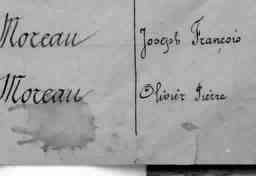 Moreau Joseph François
Moreau Olivier Pierre